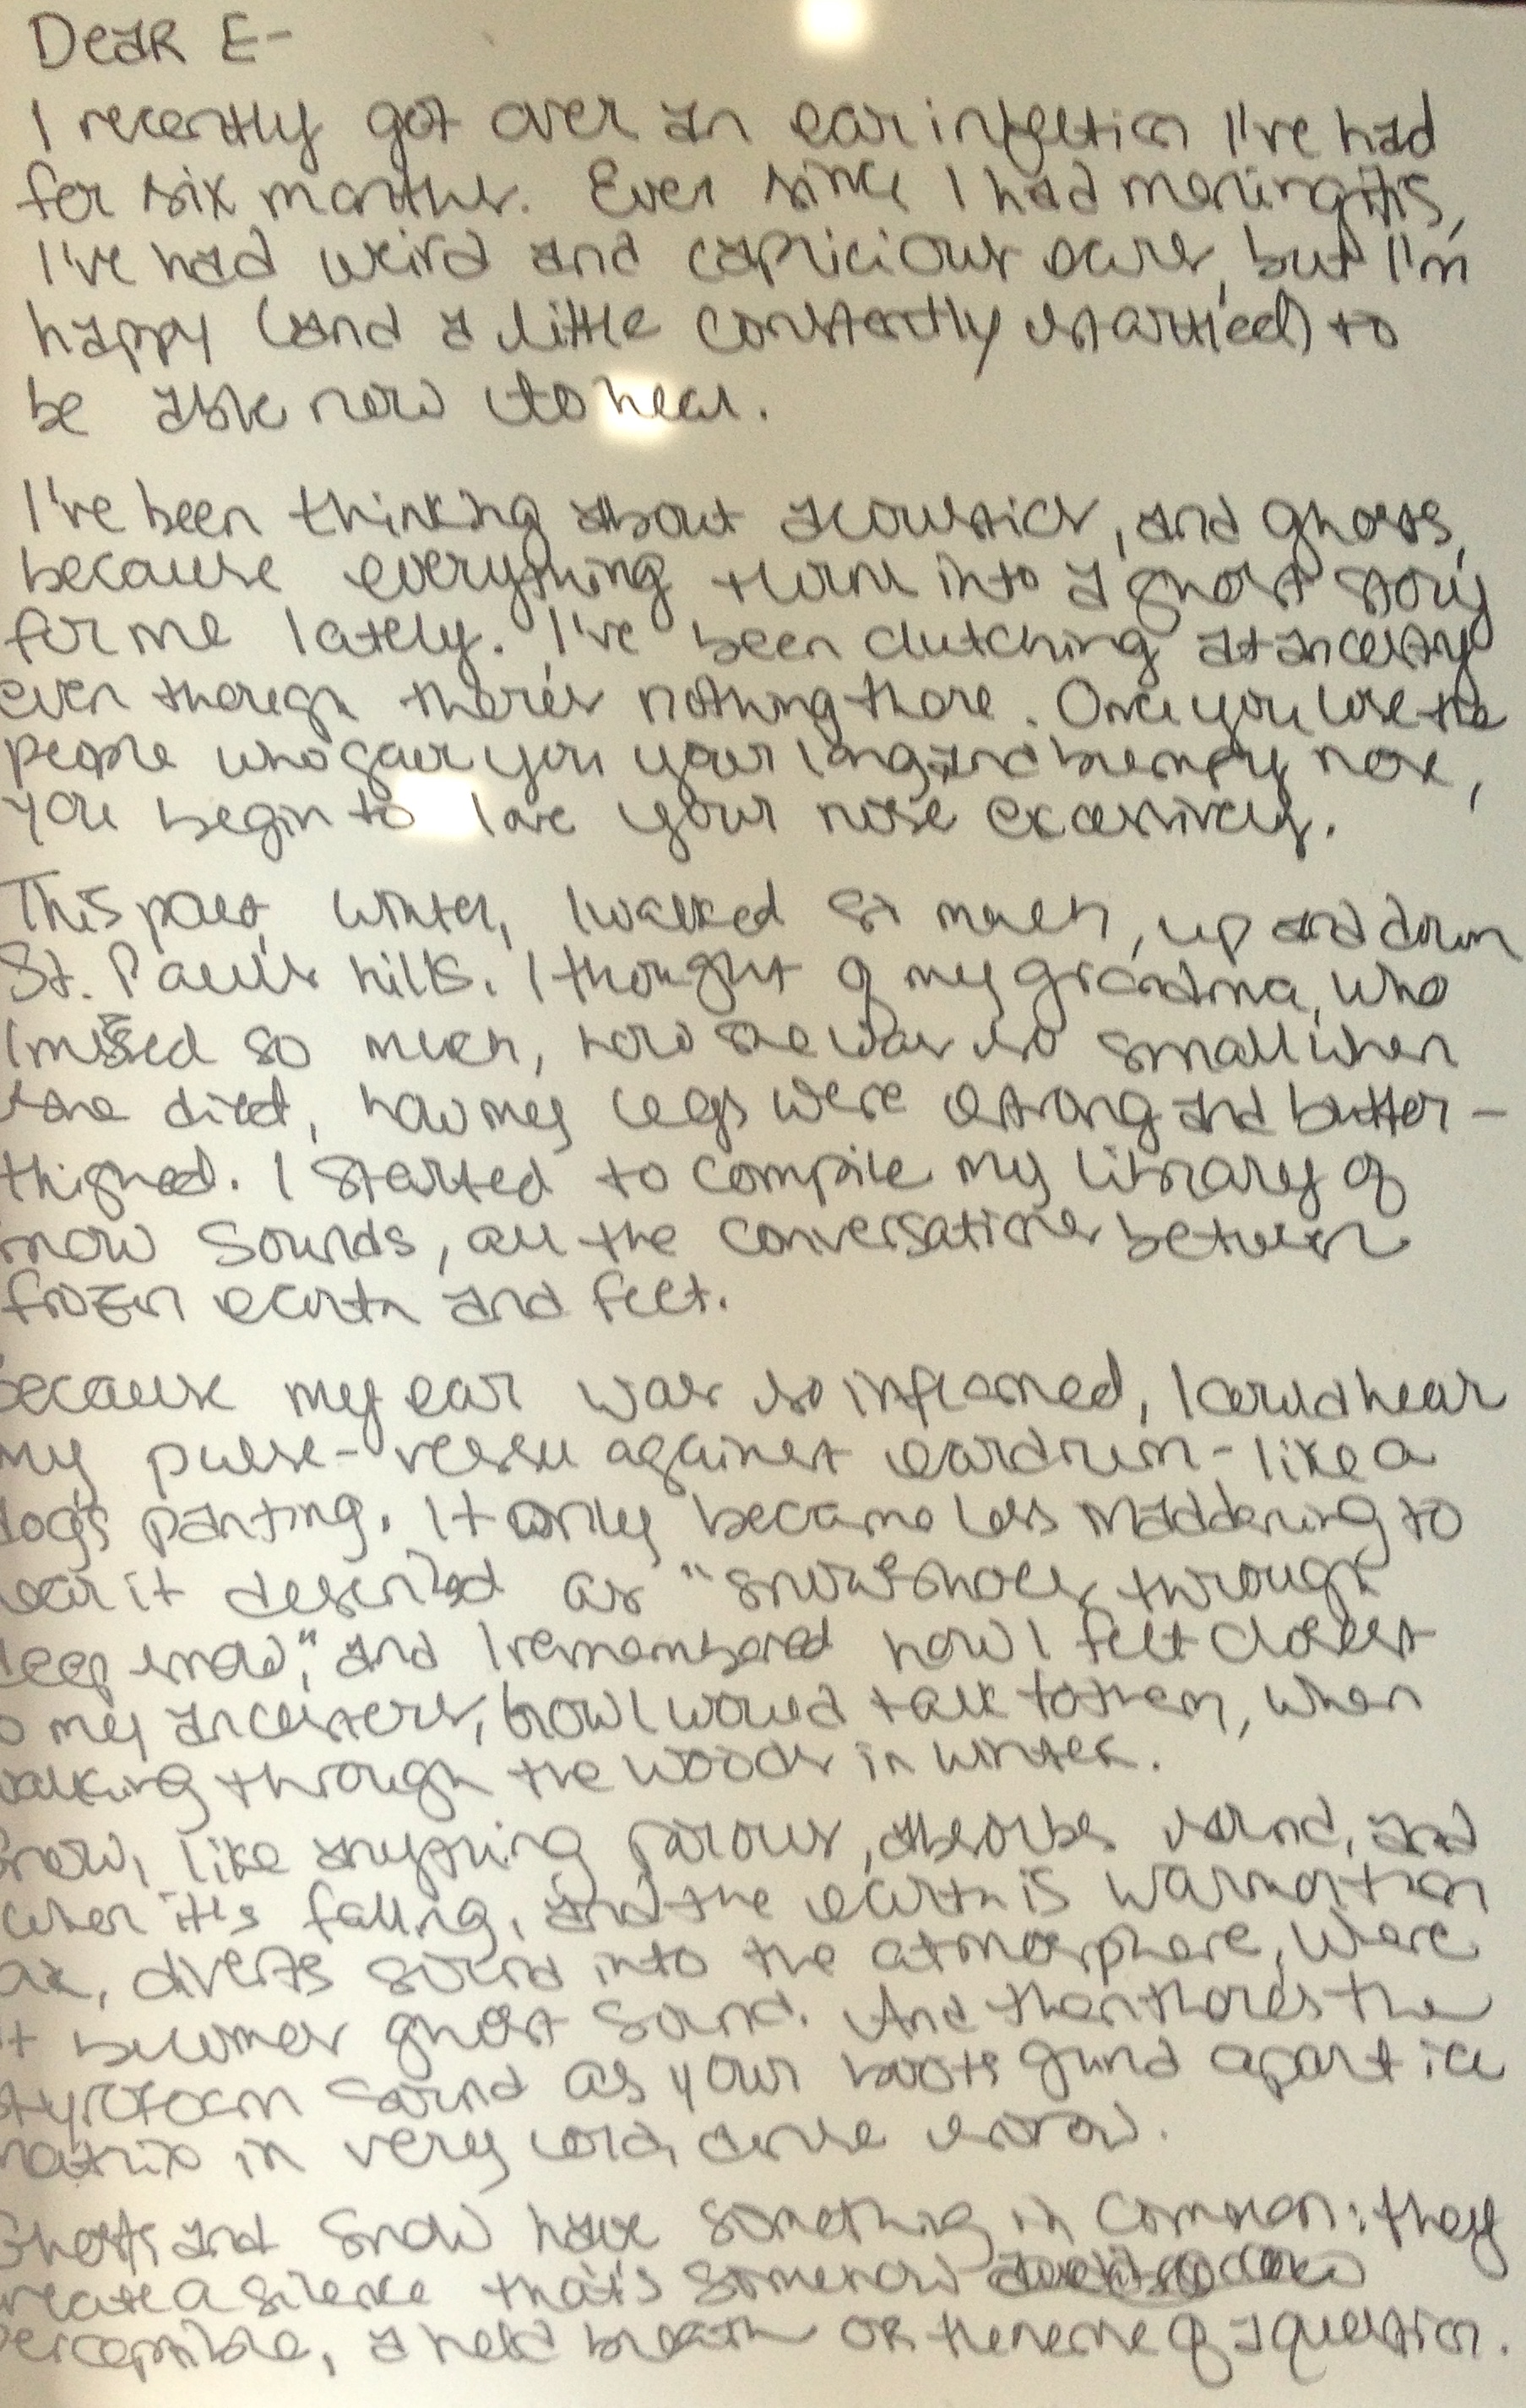 Dear E-
I recently got over an ear infection I've had
for six months. Ever since I had meningitis,
I've had weird and capricious ears, but I'm
happy (and a little constantly startled) to
be able now to hear.
I've been thinking about acoustics, and ghosts,
because everything turns into a ghost story
for me lately. I've been clutching at ancestry
even though there's nothing there. Once you lose the
people who gave you your long and bumpy nose,
you begin to love your nose excessively.
This past winter, I walked so much, up and down
St. Paul's hills. I thought of my grandma, who
I missed so much, how she was so small when
she died, how my legs were strong and butter-
thighed. I started to compile my library of
snow sounds, all the conversations between
frozen earth and feet.
because my ear was so inflamed, I could hear
my pulse - vessel against eardrum - like a
dog's panting. It only became less maddening to
hear it described as "snowshoes through
deep snow," and I remembered how I felt closest
to my ancestors, how I would talk to them, when
walking through the woods in winter.
Snow, like anything porous, absorbs sound, and
when it's falling, and the earth is warmer than
air, diverts sound into the atmosphere, where
it becomes ghost sound. And then there's the
styrofoam sound as your boots grind apart ice
matrix in very cold, dense snow.
Ghosts and snow have something in common: they
create a silence that's somehow
perceptible, a held breath or the nerve of a question.